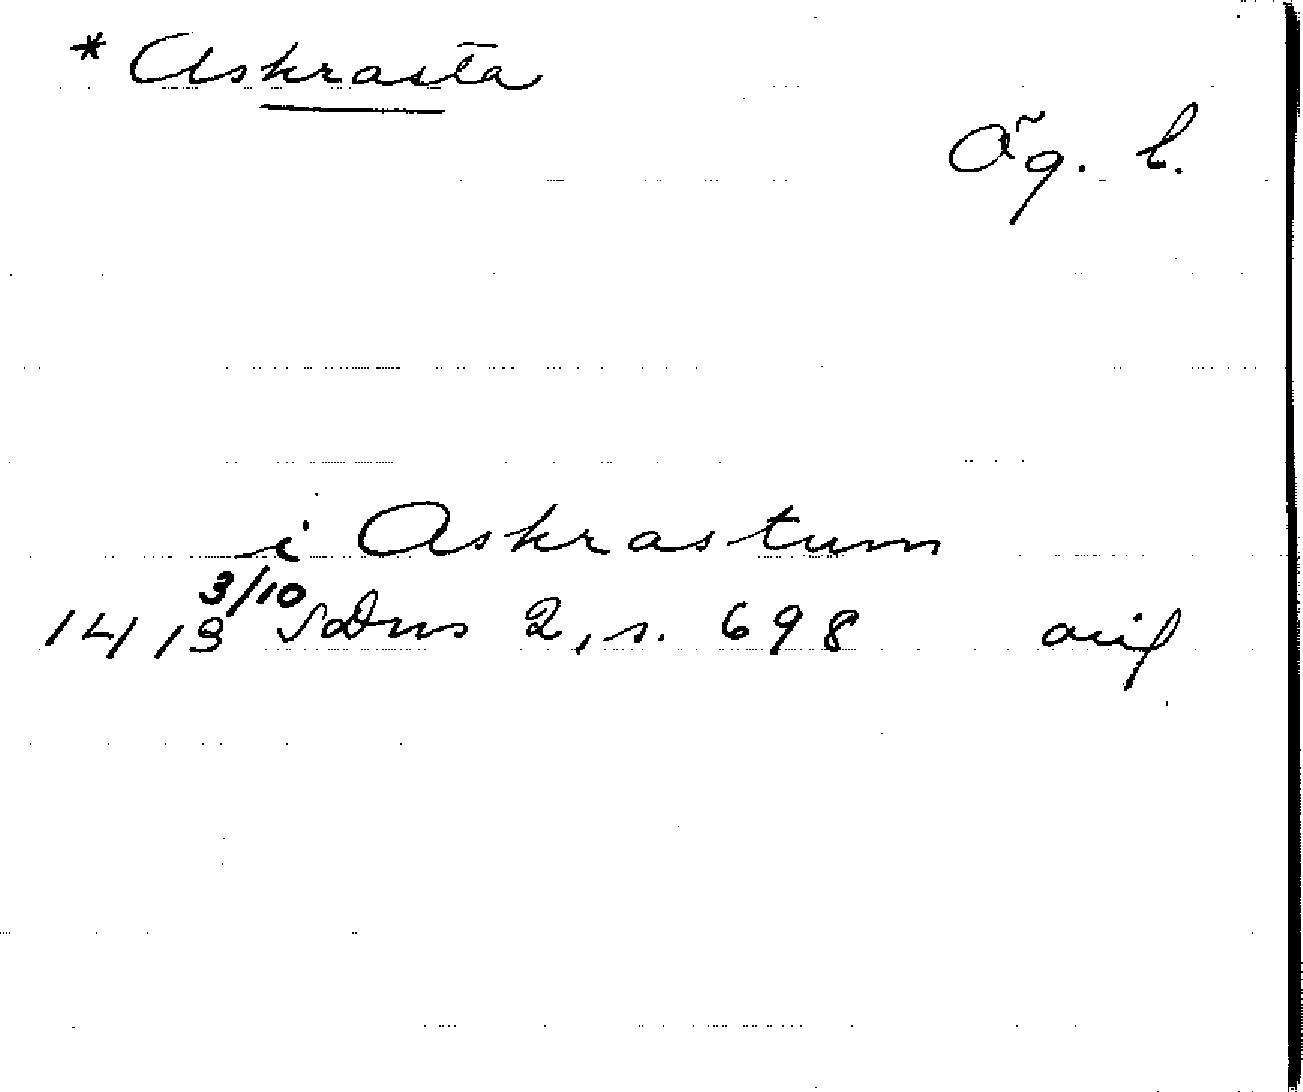 * Askrasta
Ög. l.
i Askrastum
1413 3/10 SDns 2, s. 698 avf